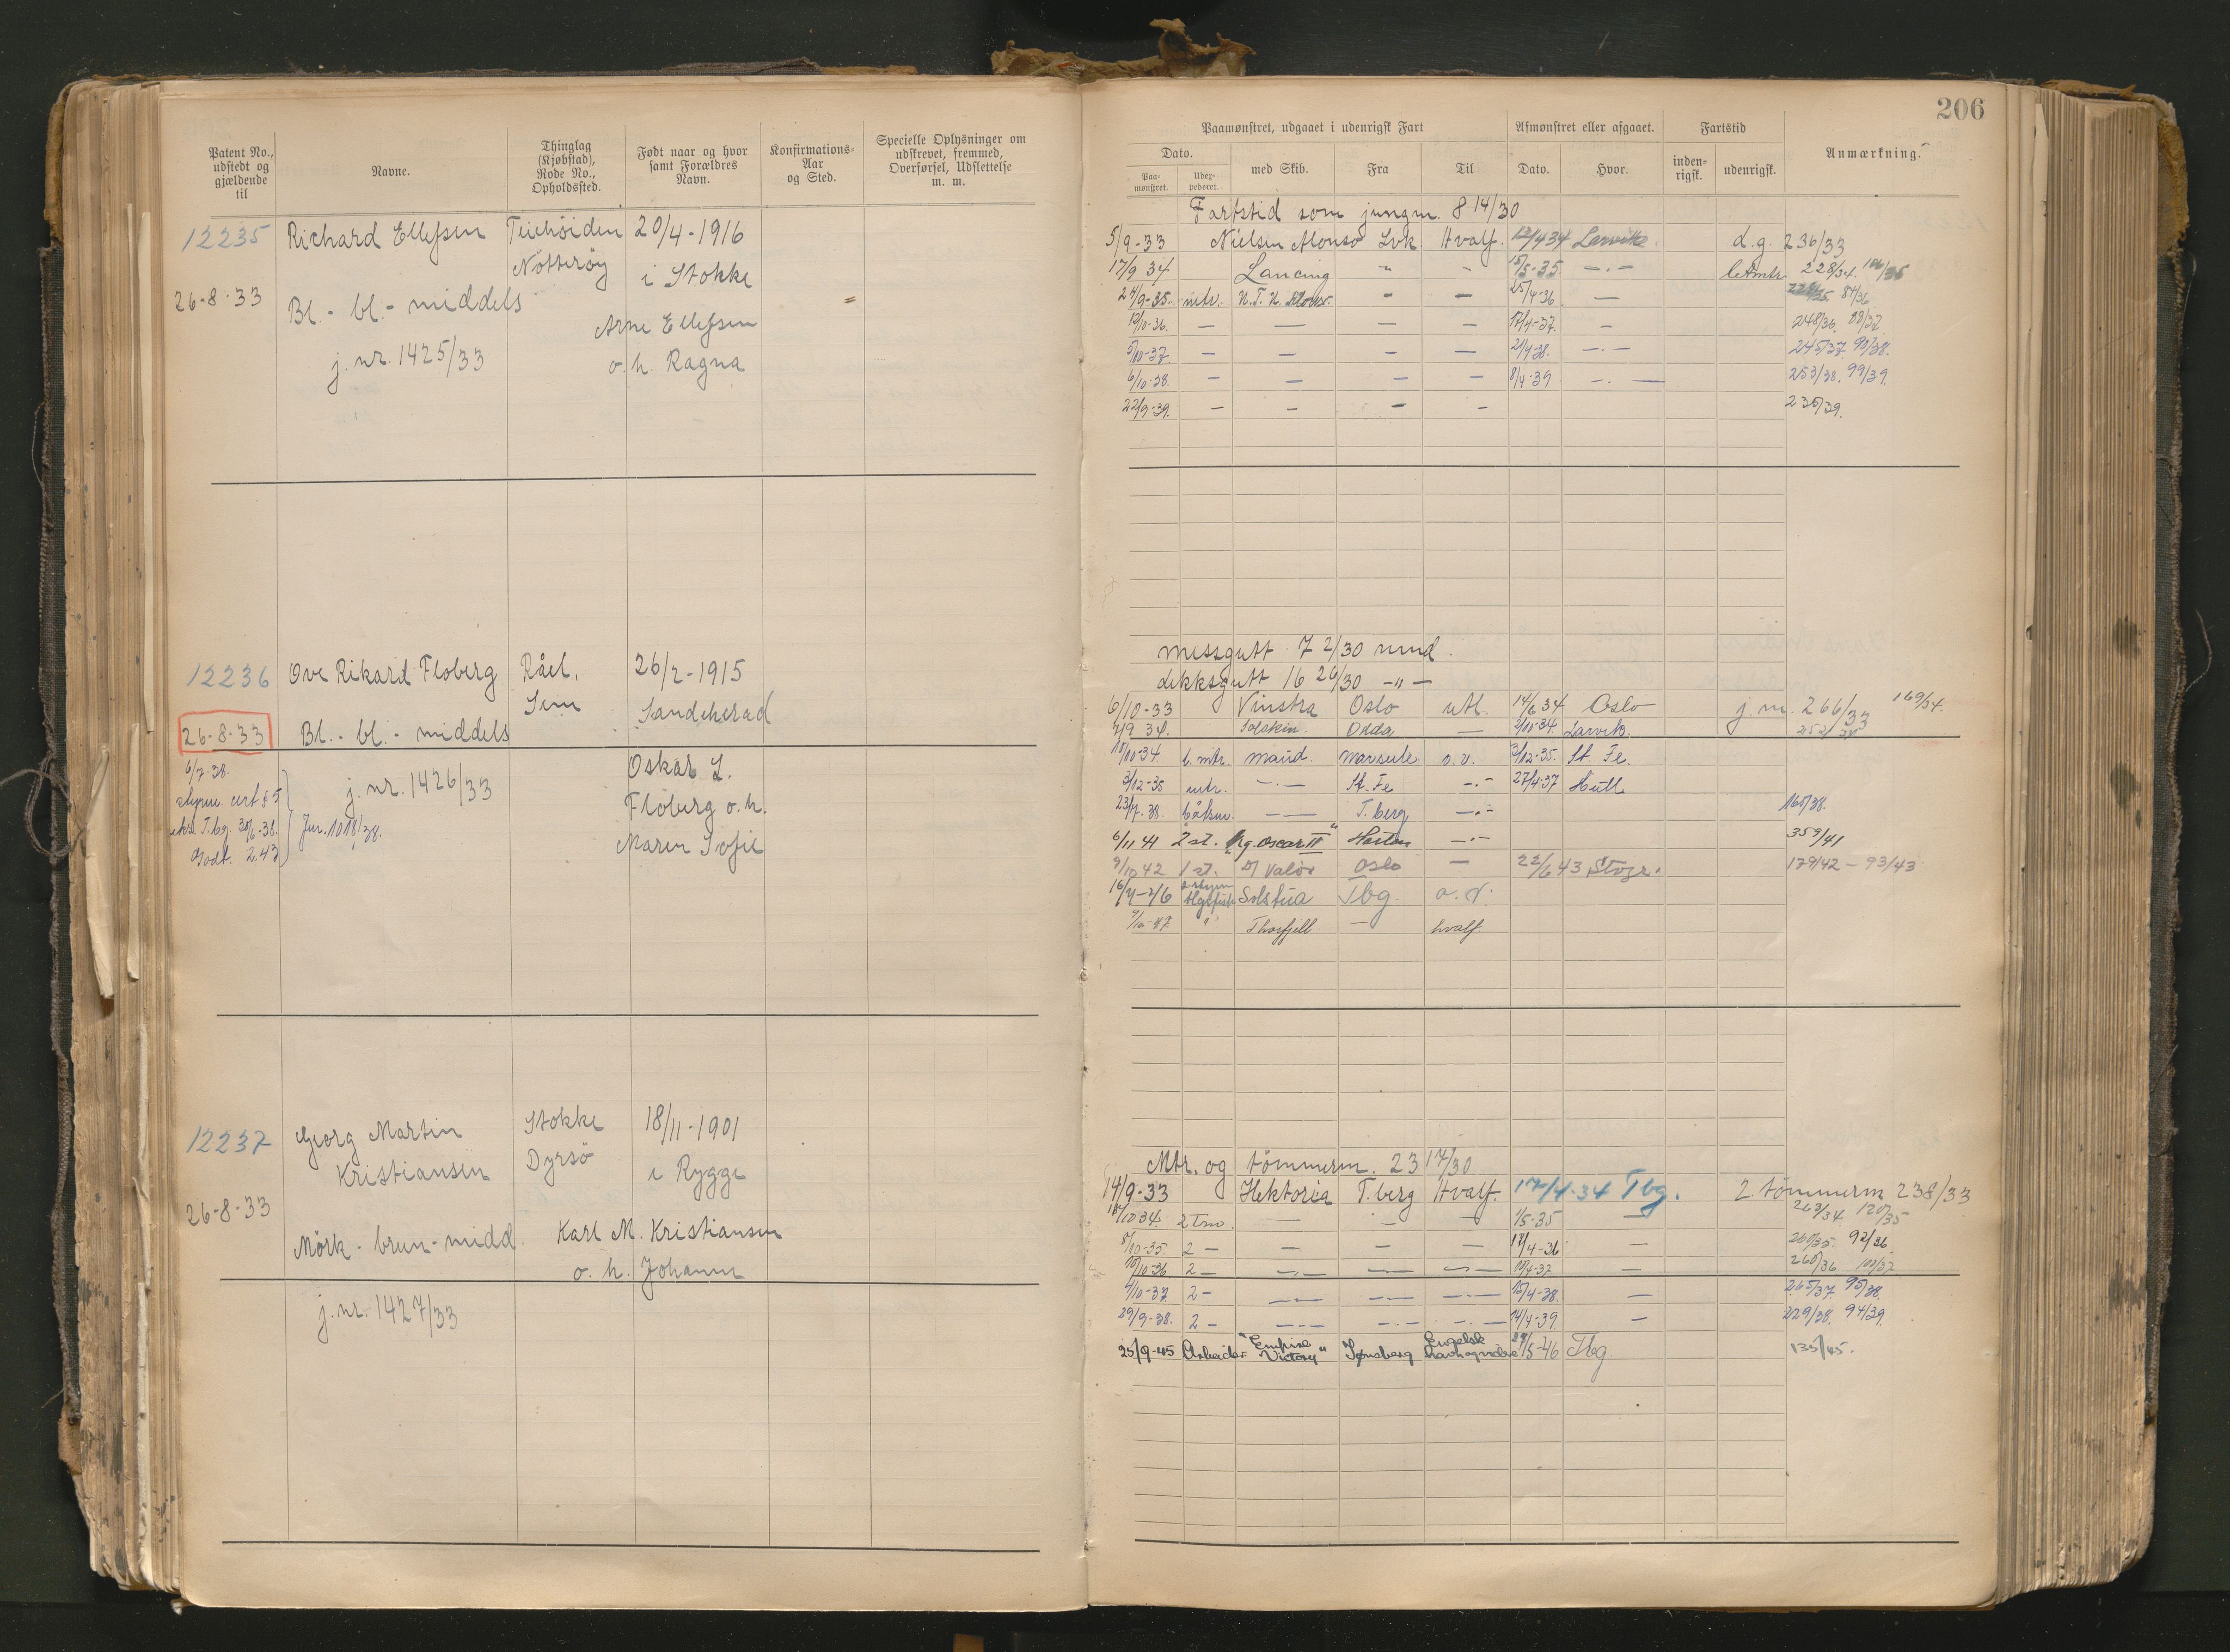 206
Patent No., udstedt og gjældende til
Navne.
Thinglag (Kjøbstad), Rode No., Opholdssted.
Født naar og hvor samt Forældres Navn.
Konfirmations-Aar og Sted.
Specielle Oplysninger om udskrevet, fremmed, Overførsel, Udslettelse m. m.
12235 Richard Ellefsen Teiehöiden 20/4-1916
Nötteröy i Stokke
26-8-33 Bl.- bl.- middels
Arne Ellefsen
j. nr. 1425/33 o. h. Ragna
12236 Ove Rikard Floberg Råel, 26/2-1915
Sem Sandeherad
26-8-33 Bl.- bl.- middels
6/7-38. Oskar L.
styrm. cert § 5 j. nr. 1426/33
Floberg o. h.
T.bg. 30/6-38. Jnr. 1018/38.
Godt. 2.43 Maren Sofie
12237 Georg Martin Stokke 18/11-1901
Kristiansen Dyrsö i Rygge
26-8-33
Mörk - brun - midd. Karl M. Kristiansen
o. h. Johanne
j. nr. 1427/33
Paamønstret, udgaaet i udenrigsk Fart
Afmønstret eller afgaaet.
Fartstid
Anmærkning.
Dato.
Paa-mønstret.
med Skib.
Fra
Til
Dato.
Hvor.
inden-rigsk.
udenrigsk.
Fartstid som jungm. 8 14/30
5/9-33 Nielsen Alonso Lvk. Hvalf. 12/4 34 Larvik d.g. 236/33
17/9 34 Lancing " - 15/5-35 -.- 228/34.
24/9-35. mtr. N. T. N. Alonso. - - 25/4-36 - 84/36
13/10-36. - - - - 17/4-37. - 248/36. 88/37.
5/10-37. - - - - 21/4-38. -.- 245/37. 90/38.
6/10-38. - - - - 8/4-39 -.- 253/38. 99/39.
22/9-39. - - - - 236/39.
messgutt 7 2/30 mnd.
dekksgutt 16 26/30 -"-
6/10-33 Vinstra Oslo utl. 14/6 34 Oslo j.m. 266/33 169/34.
7/9 34. Solskin. Odda - 2/10-34 Larvik.
10/10-34. l. mtr. Maud. Marseile. o.v. 3/12-35. St Fe.
3/12-35 mtr. -.- St. Fe -.- 27/4-37 Hull
23/7-38. båtsm. -- T. berg -.- 165/38.
6/11 41 2 st. "Kg. Oscar II" Horten -.- 359/41
9/10 42 1 st. D/ Valör Oslo - 22/6 43 179/42 - 93/43
Solstua Tbg. o. v.
9/10-47 " Thorfjell - hvalf.
Mtr. og tömmerm. 23 17/30
14/9-33 Hektoria T.berg Hvalf. 12/4-34 Tbg. 2. tömmerm 238/33
10/10 34. 2 Tm. - - - 1/5-35 - 263/34 120/35
8/10-35. 2 - - - - 17/4-36 - 260/35. 92/36
10/10-36 2 - -.- -- -- 18/4-37 - 260/36
4/10-37 2 - -- -- -.- 15/4-38. - 265/37. 95/38.
29/9-38. 2 - -.- -.- -.- 14/4-39 - 229/38. 94/39.
25/9-45 Arbeider "Empire Victory" Tønsberg Engelsk hvalkogeri 29/5-46 Tbg. 135/45.